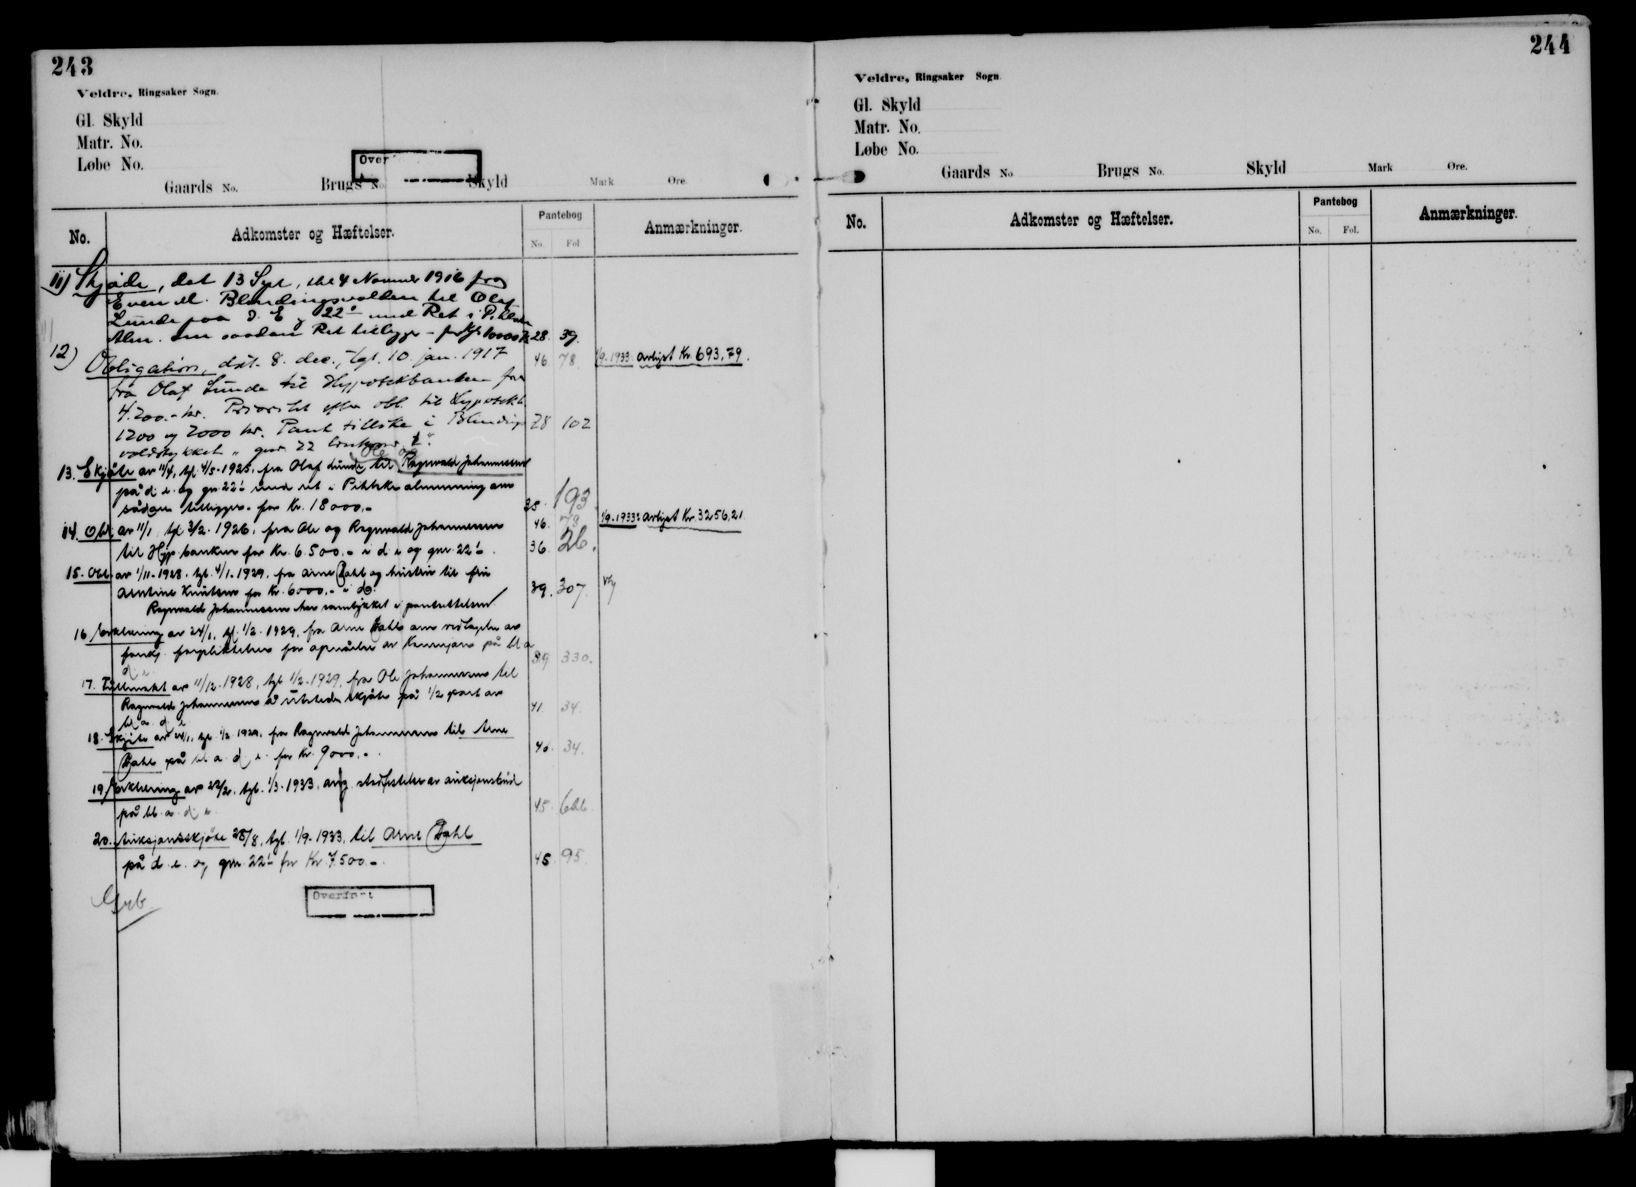 243
Veldre, Ringsaker Sogn.
Gl. Skyld
Matr. No.
Løbe No.
Over
Gaards No. Brugs No. Skyld Mark Øre.
No. Adkomster og Hæftelser. Pantebog No. Fol Anmærkninger.
11) Skjøde, dat 13 Sept, 4 Novemb 1916 fra
Even M. Blindingsvolden til Olaf
Lunde paa d. E og 22 med Ret i
Alm. om saadan Ret tilligger - for Kr 10000 28. 39.
12) Obligation, dat. 8. dec., tgl. 10. jan. 1917 46 78. 1/9.1933 avlyst Kr. 693,79.
fra Olaf Lunde til Hypotekbanken for
4.200.- kr. Prioritet efter obl. til Hypotekb.
1200 og 2000 kr. Pant tillike i Blindings 28 102
voldstykket " gnr 22
Ole og
13. Skjøte av 11/4, tgl. 4/5-1925, fra Olaf Lunde til Ragnvald Johannessen
på d. e. og gn. 22 med ret i Pihlske almenning om
sådan tilligger. for Kr. 18000.- 35. 193.
14. Obl. av 11/1, tgl 3/2. 1926, fra Ole og Ragnvald Johannessen 46. 79 1/9.1933: avlyst Kr. 3256,21.
til Hyp. banken for Kr. 6.500.- i d e og gnr. 22 36. 26.
15. Obl. av 1/11-1928, tgl. 4/1-1929, fra Arne Dahl og hustru til frk
Knutsen for Kr. 6000.- i do. 39. 307.
Ragnvald Johannessen har samtykket i pantsettelsen
16 Erklæring av 24/1, tgl. 1/2. 1929, fra Arne Dahl om vedtagelse av
forskj. forpliktelser for på bl a 39 330.
d e
17. Fullmakt av 11/12-1928, tgl 1/2-1929, fra Ole Johannessen til
Ragnvald Johannessen å utstede skjøte på 1/2 part av 41. 34.
bl a. d e
18. Skjøte av 24/1, tgl. 1/2 1929, fra Ragnvald Johannessen til Arne
Dahl på bl. a. d e. for Kr. 9000.- 40. 34.
19. Erklæring av 22/2, tgl. 1/3-1933, ang. stadfestelse av auksjonsbud
på bl. a. d. e. 45. 626.
20. Auksjonsskjøte 28/8, tgl. 1/9-1933, til Arne Dahl
på d. e. og gnr. 22 for Kr 7.500.- 46 95.
Grb.
Overført
244
Veldre, Ringsaker Sogn.
Gl. Skyld
Matr. No.
Løbe No.
Gaards No Brugs No. Skyld Mark Øre.
No. Adkomster og Hæftelser. Pantebog No. Fol. Anmærkninger.